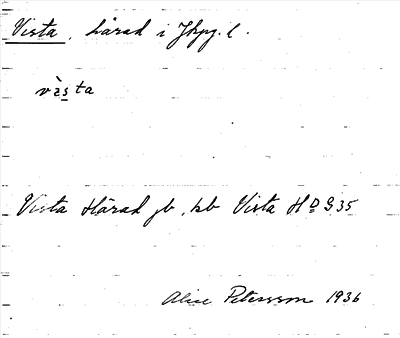 Vista, härad i Jkpg. l.
vìsta
Vista Härad jb, kb Vista HD S 35
Alice Petersson 1936